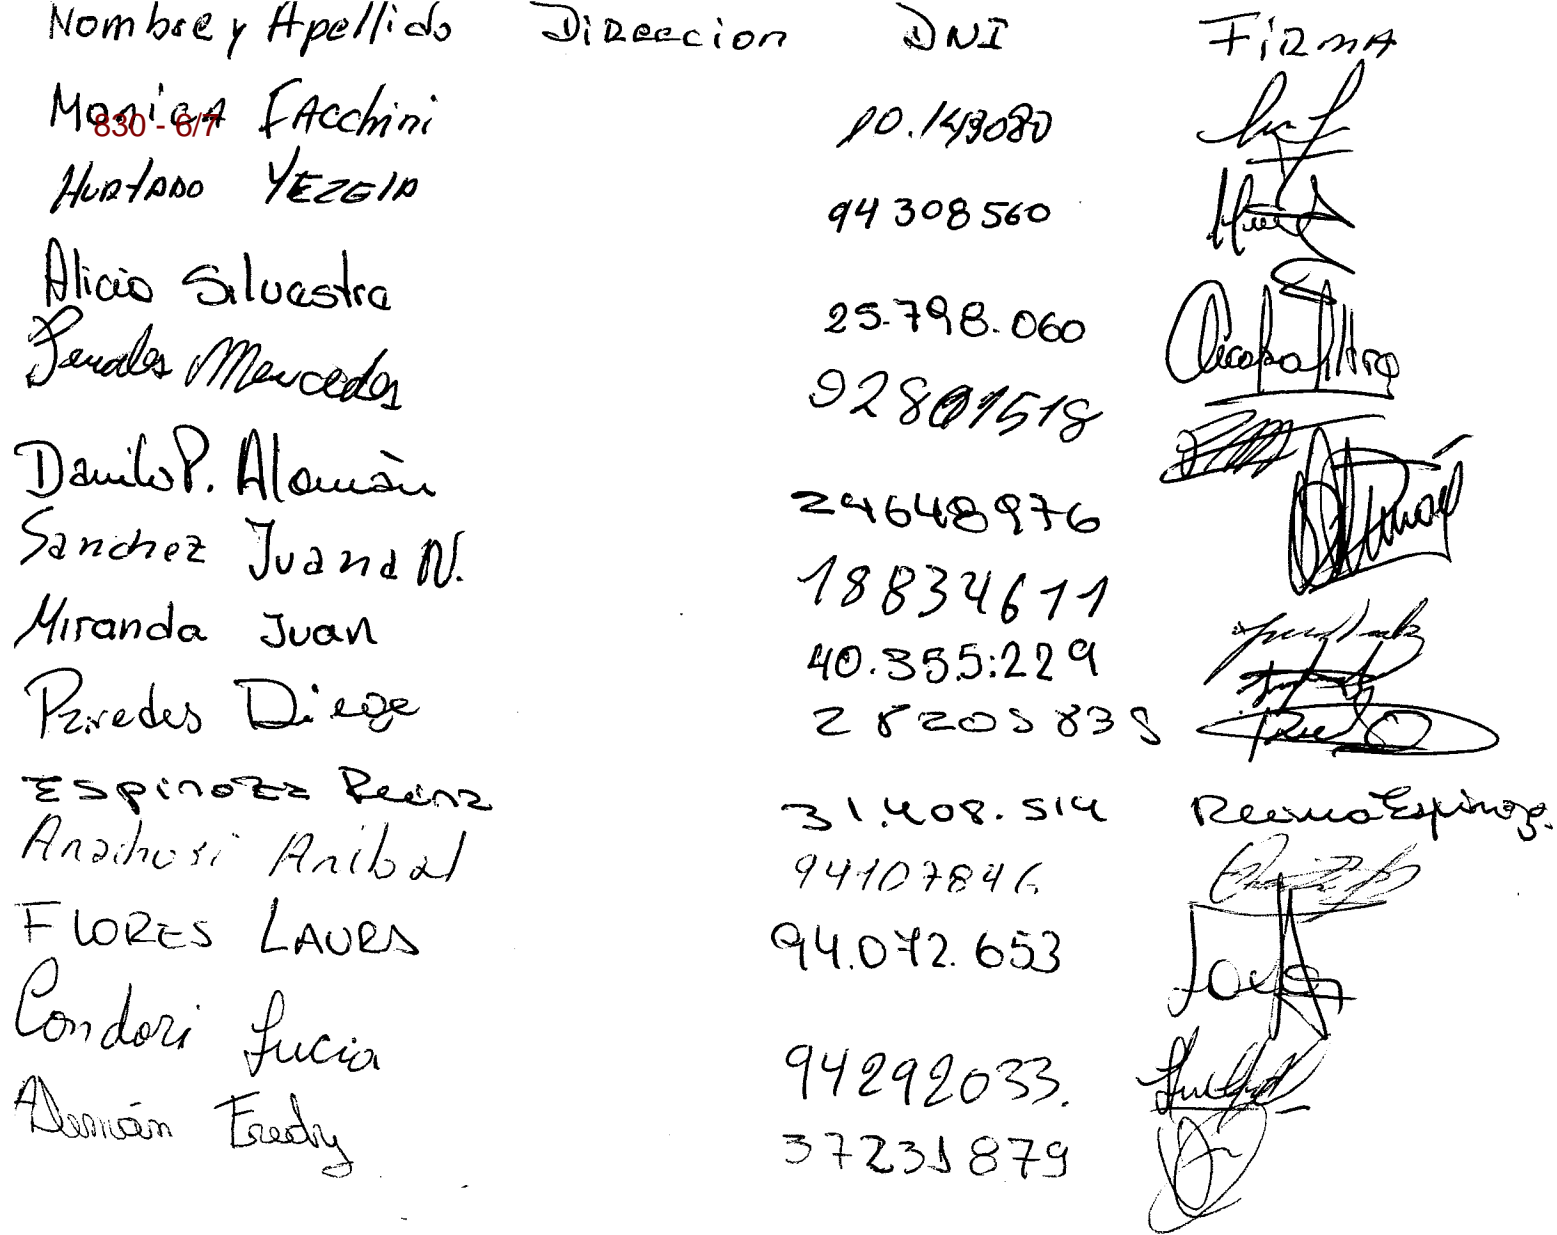 Nombre y Apellido Direccion DNI FIRMA
Monica FAcchini 10.149080
830 - 6/7
HURTADO YEZEIA 94 308 560
Alicia Silvestra 25.798.060
Mercedes
Danilo P. Alemán 24648976
Sanchez Juana N. 18834611
Miranda Juan 40.355.229
Paredes Diego 28205835
Espinoza 31.408.514 Espinoza
Anibal 94107846
FLORES LAURA 94.072.653
Condori Lucia 94292033.
Alemán Fredy 37231879